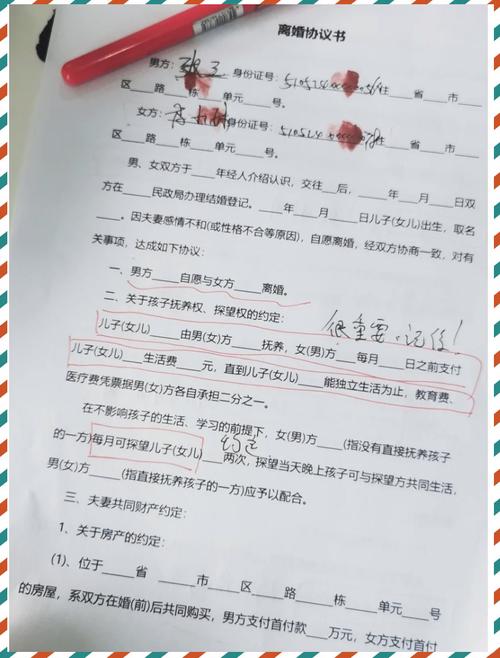 离婚协议书
男方：张三 身份证号：510524 住____省____市____
区____路____栋____单元____号。
女方：李 身份证号：510524 住____省____市____
区____路____栋____单元____号。
男、女双方于____年经人介绍认识，交往__后，____年__月____日双
方在____民政局办理结婚登记。____年__月____日儿子(女儿)出生，取名
____。因夫妻感情不和(或性格不合等原因)，自愿离婚，经双方协商一致，对有
关事项，达成如下协议：
一、男方____自愿与女方____离婚。
二、关于孩子抚养权、探望权的约定：
很重要，记住！
儿子(女儿)____由男(女)方____抚养，女(男)方__每月____日之前支付
儿子(女儿)____生活费____元，直到儿子(女儿)____能独立生活为止，教育费、
医疗费凭票据男(女)方各自承担二分之一。
在不影响孩子的生活、学习的前提下，女(男)方____(指没有直接抚养孩子
约定
的一方)每月可探望儿子(女儿)____两次，探望当天晚上孩子可与探望方共同生活，
男(女)方____(指直接抚养孩子的一方)应予以配合。
三、夫妻共同财产约定：
1、关于房产的约定：
(1)、位于____省 ____市____区____路____栋____单元____号
的房屋，系双方在婚(前)后共同购买，男方支付首付款___万元，女方支付首付